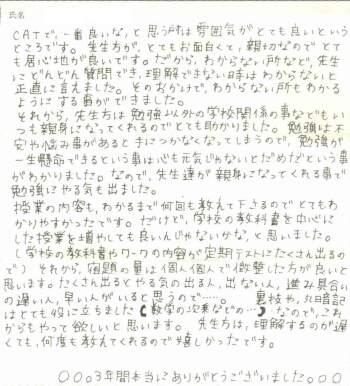 氏名
CATで、一番良いな、と思う所は雰囲気がとても良いという
ところです。先生方が、とてもお面白くて、親切なのでとて
も居心地が良いです。だから、わからない所など、先生
にどんどん質問でき、理解できない時はわからないと
正直に言えました。そのおかげで、わからない所もわかる
ようにする事ができました。
それから、先生方は勉強以外の学校関係の事などもい
つも親身になってくれるのでとても助かりました。勉強は不
安や悩み事があるときにつかなくなってしまうので、勉強が
一生懸命できるという事は心も元気じゃないとだめだという事
がわかりました。なので、先生達が親身になってくれる事で
勉強にやる気も出ました。
授業の内容も、わかるまで何回も教えて下さるのでとてもわ
かりやすかったです。だけど、学校の教科書を中心に
した授業を増やしても良いんじゃないかな、と思いました。
(学校の教科書やワークの内容が定期テストにたくさん出るの
で) それから、宿題の量は個人個人で調整した方が良いと
思います。たくさん出るとやる気の出る人、出ない人、進み具合い
の遅い人、早い人がいると思うので……。裏技や、丸暗記
はとても役に立ちました(数学の次乗などの…)なので、これ
からもやって欲しいと思います。先生方は、理解するのが遅
くても、何度も教えてくれるので嬉しかったです。
○○○3年間本当にありがとうございました。○○○